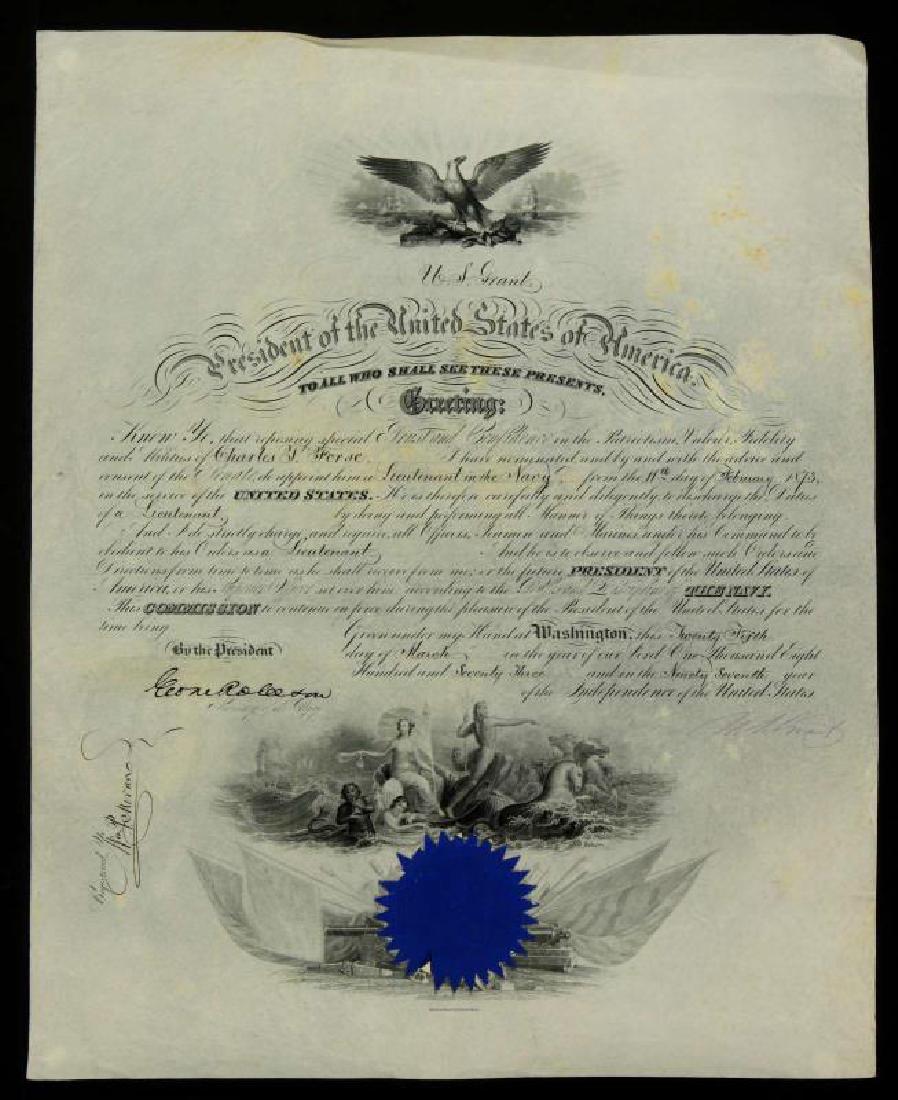 U. S. Grant
President of the United States of America.
TO ALL WHO SHALL SEE THESE PRESENTS,
Greeting:
Know Ye, that reposing special Trust and Confidence in the Patriotism, Valour, Fidelity
and Abilities of Charles I have nominated and by and with the advice and
consent of the Senate, do appoint him a Lieutenant in the Navy from the 11th day of February 1873,
in the service of the UNITED STATES. He is therefore carefully and diligently to discharge the Duties
of a Lieutenant, by doing and performing all Manner of Things thereto belonging.
And I do strictly charge, and require all Officers, Seamen and Marines under his Command to be
obedient to his Orders as a Lieutenant And he is to observe and follow such Orders and
Directions from time to time as he shall receive from me, or the future PRESIDENT of the United States of
America, or his Officer set over him, according to the THE NAVY.
This COMMISSION to continue in force during the pleasure of the President of the United States for the
time being.
Given under my Hand at Washington, this Twenty Fifth
day of March in the year of our Lord One Thousand Eight
Hundred and Seventy Three and in the Ninety Seventh year
of the Independence of the United States
By the President
Geo. M. Robeson
Registered